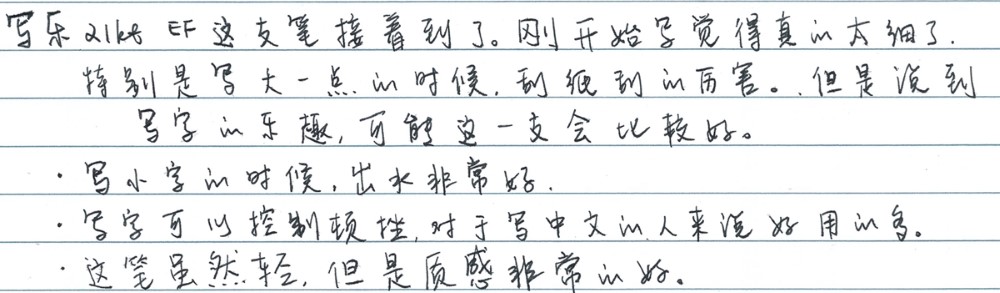 写乐21kt EF这支笔接着到了。刚开始写觉得真的太细了.
特别是写大一点的时候,刮纸刮的厉害。.但是说到
写字的乐趣,可能这一支会比较好。
·写小字的时候,出水非常好.
·写字可以控制顿挫,对于写中文的人来说好用的多。
·这笔虽然轻,但是质感非常的好。